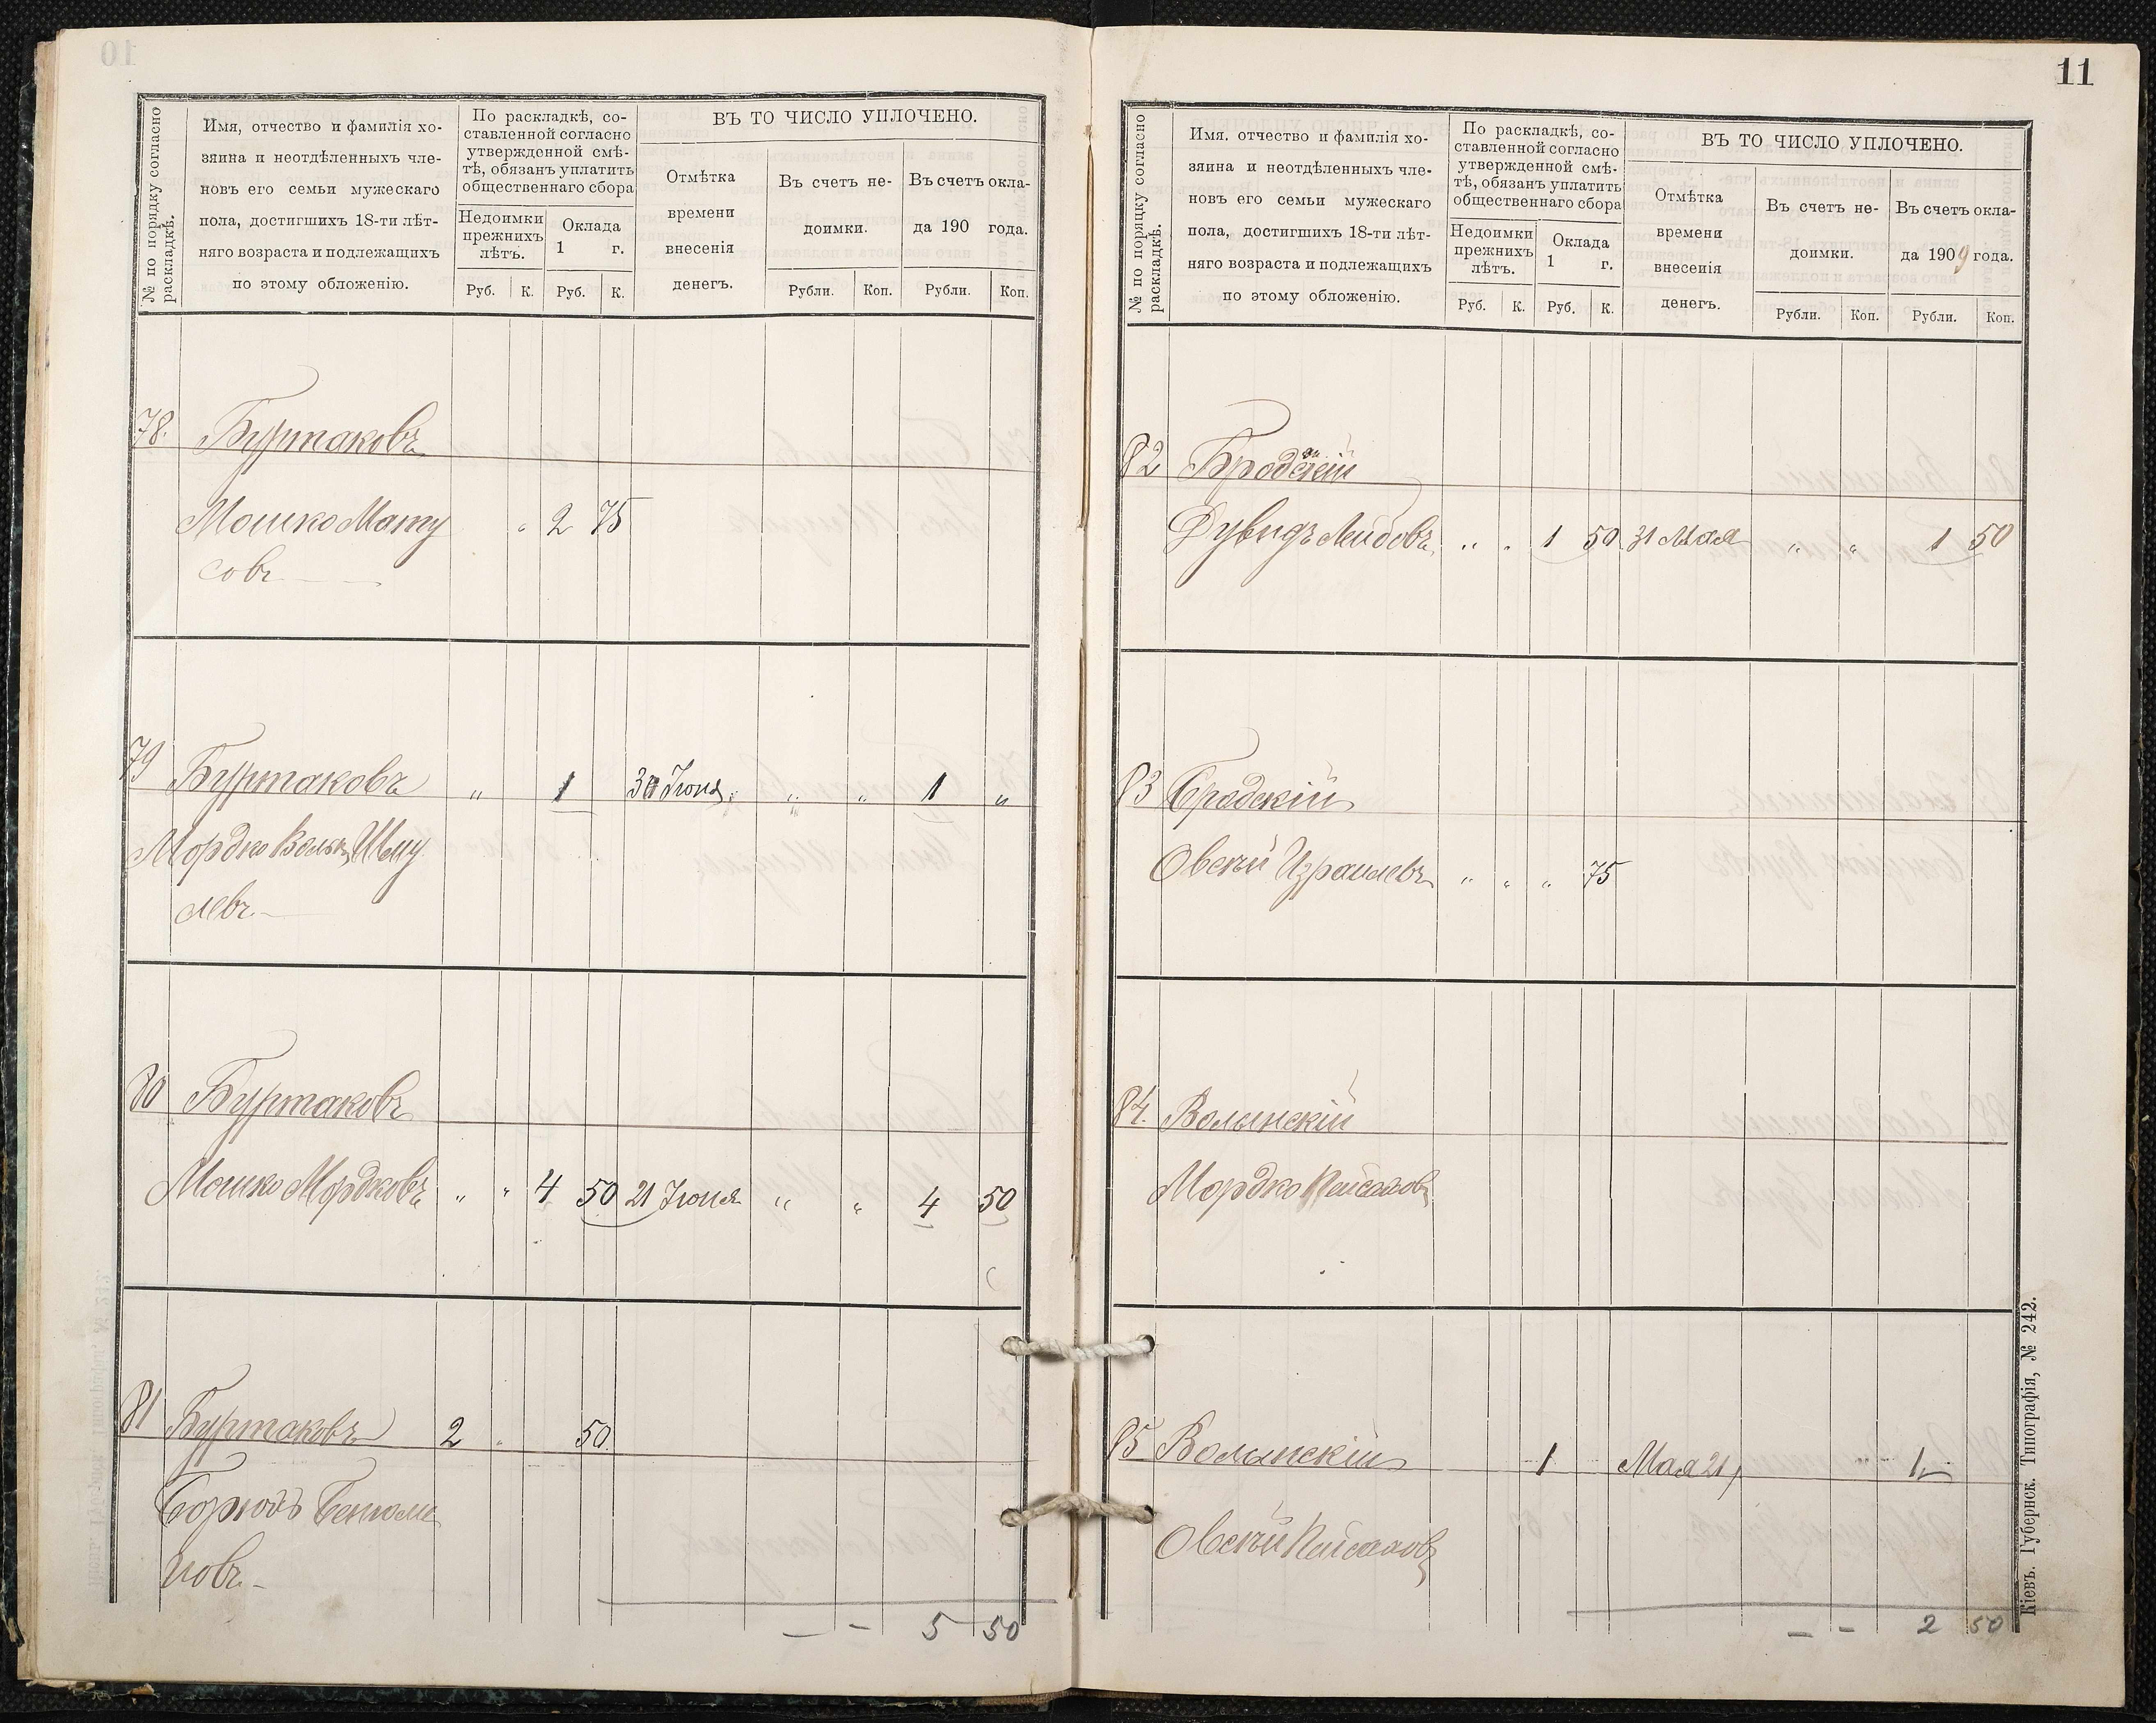 № по порядку согласно
раскладкѣ.
Имя, отчество и фамилія хо-
зяина и неотдѣленныхъ чле-
новъ его семьи мужескаго
пола, достигшихъ 18-ти лѣт-
няго возраста и подлежащихъ
по этому обложенію.
По раскладкѣ, со-
ставленной согласно
утвержденной смѣ-
тѣ, обязанъ уплатить
общественнаго сбора
Недоимки
прежнихъ
лѣтъ.
Оклада
1 г.
Руб. К. Руб. К.
ВЪ ТО ЧИСЛО УПЛОЧЕНО.
Отмѣтка
времени
внесенія
денегъ.
Въ счетъ не-
доимки.
Въ счетъ окла-
да 190 года.
Рубли. Коп. Рубли. Коп.
78. Буртаковъ
Мошко Мату „ 2 75
совъ
79 Буртаковъ „ 1 30 Іюня „ „ 1 „
Мордко Волькъ Шму
левъ
80 Буртаковъ
Мошко Мордковъ „ „ 4 50 21 Іюня „ „ 4 50
81 Буртаковъ 2 „ 50.
Борюхъ
новъ
— — 5 50
11
№ по порядку согласно
раскладкѣ.
Имя, отчество и фамилія хо-
зяина и неотдѣленныхъ чле-
новъ его семьи мужескаго
пола, достигшихъ 18-ти лѣт-
няго возраста и подлежащихъ
по этому обложенію.
По раскладкѣ, со-
ставленной согласно
утвержденной смѣ-
тѣ, обязанъ уплатить
общественнаго сбора
Недоимки
прежнихъ
лѣтъ.
Оклада
1 г.
Руб. К. Руб. К.
ВЪ ТО ЧИСЛО УПЛОЧЕНО.
Отмѣтка
времени
внесенія
денегъ.
Въ счетъ не-
доимки.
Въ счетъ окла-
да 1909 года.
Рубли. Коп. Рубли. Коп.
82 Бродскій
Дувидъ Лейбовъ „ „ 1 50 31 Мая „ „ 1 50
83 Бродскій
Овсѣй Израилевъ „ „ „ 75
84. Волынскій
Мордко Пейсаховъ
85 Волынскій 1 Мая 21 „ 1
Овсѣй Пейсаховъ
— — 2 50
Кіевъ. Губернск. Типографія, № 242.